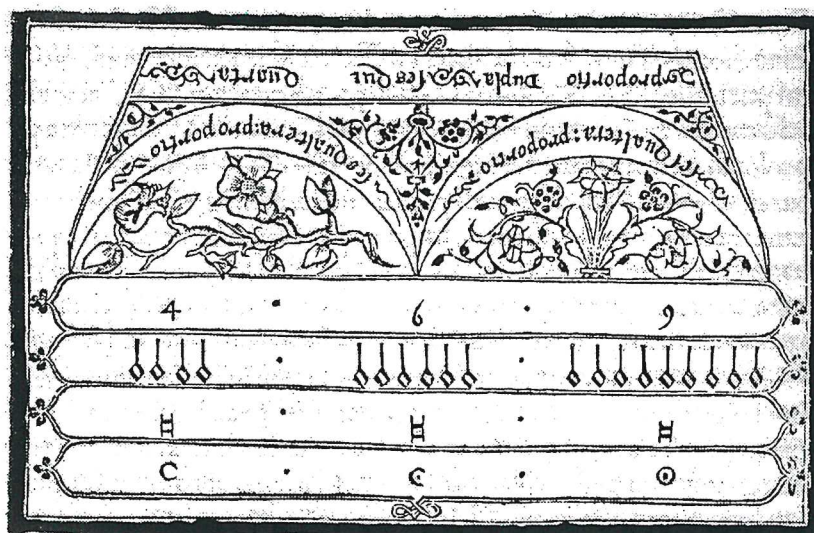 Proportio Dupla sesqui Quarta
sesqualtera: proportio
sesqualtera: proportio
4 . 6 . 9
C . C . O